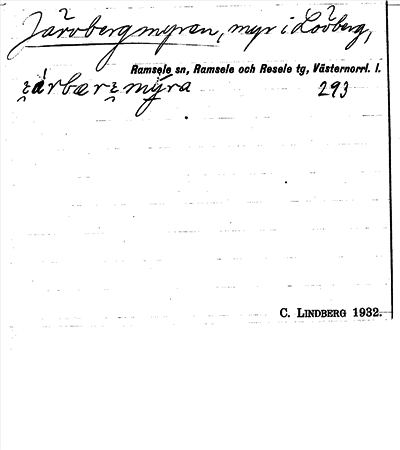 Järvbergmyran, myr i Lövberg,
Ramsele sn, Ramsele och Resele tg, Västernorrl. l.
293
C. LINDBERG 1932.